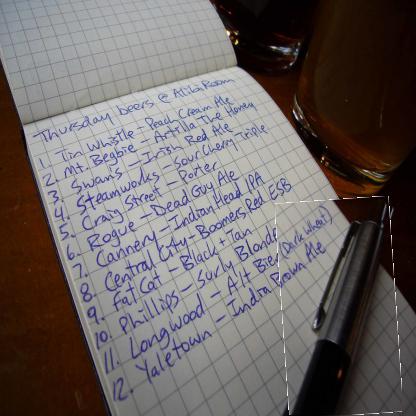 Thursday beers @ Alibi Room
1. Tin Whistle - Peach Cream Ale
2. Mt. Begbie - Attila The Honey
3. Swans - Irish Red Ale
4. Steamworks - Sour Cherry Triple
5. Craig Street - Porter
6. Rogue - Dead Guy Ale
7. Cannery - Indian Head IPA
8. Central City - Boomers Red ESB
9. Fat Cat - Black + Tan
10. Phillips - Surly Blonde
11. Longwood - Alt Bier (Dark Wheat)
12. Yaletown - India Brown Ale